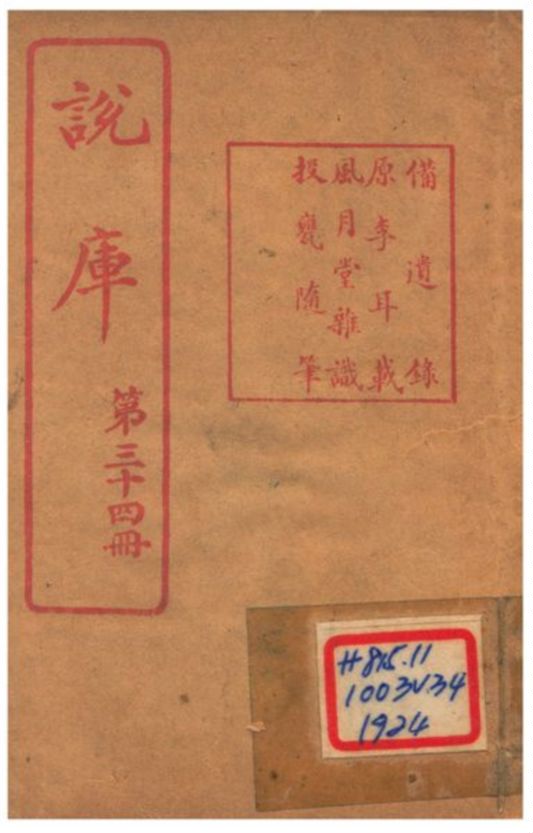 說庫
第三十四冊
備遺錄
原李耳載
風月堂雜識
投甕隨筆
H 815.11
1003 V.34
1924